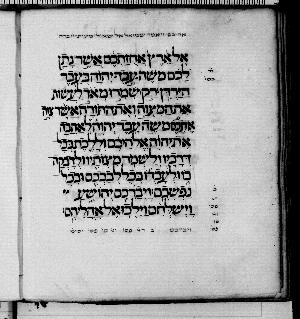 אל ארץ אחזתכם אשר נתן
לכם משה עבד יהוה בעבר
הירדן רק שמרו מאד לעשות
את המצוה ואת התורה אשר צוה
אתכם משה עבד יהוה לאהבה
את יהוה אלהיכם וללכת בכל
דרכיו ולשמר מצותיו ולדבקה
בו ולעבדו בכל לבבכם ובכל
נפשכם ויברכם יהושע
וישלחם וילכו אל אהליהם